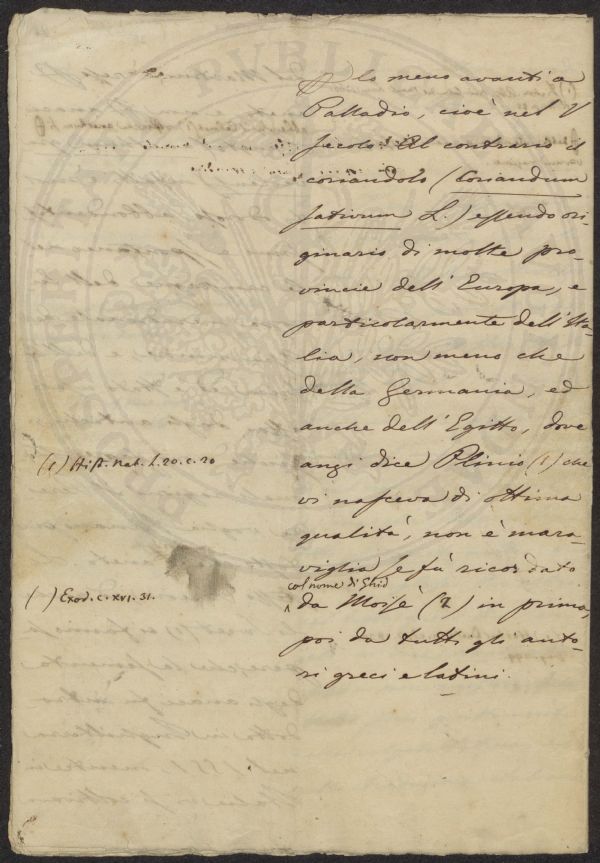 lo meno avanti a
Palladio, cioè nel V
secolo. Al contrario il
coriandolo (Coriandum
sativum L.) essendo ori-
ginario di molte pro-
vincie dell'Europa, e
particolarmente dell'Ita-
lia, non meno che
della Germania, ed
anche dell'Egitto, dove
anzi dice Plinio (1) che
vi nasceva di ottima
qualità, non è mara-
viglia se fù ricordato
col nome di Ghid
da Moisè (2) in prima,
poi da tutti gli auto-
ri greci e latini.
(1) Hist. Nat. L. 20. c. 20
( ) Exod. c. XVI. 31.